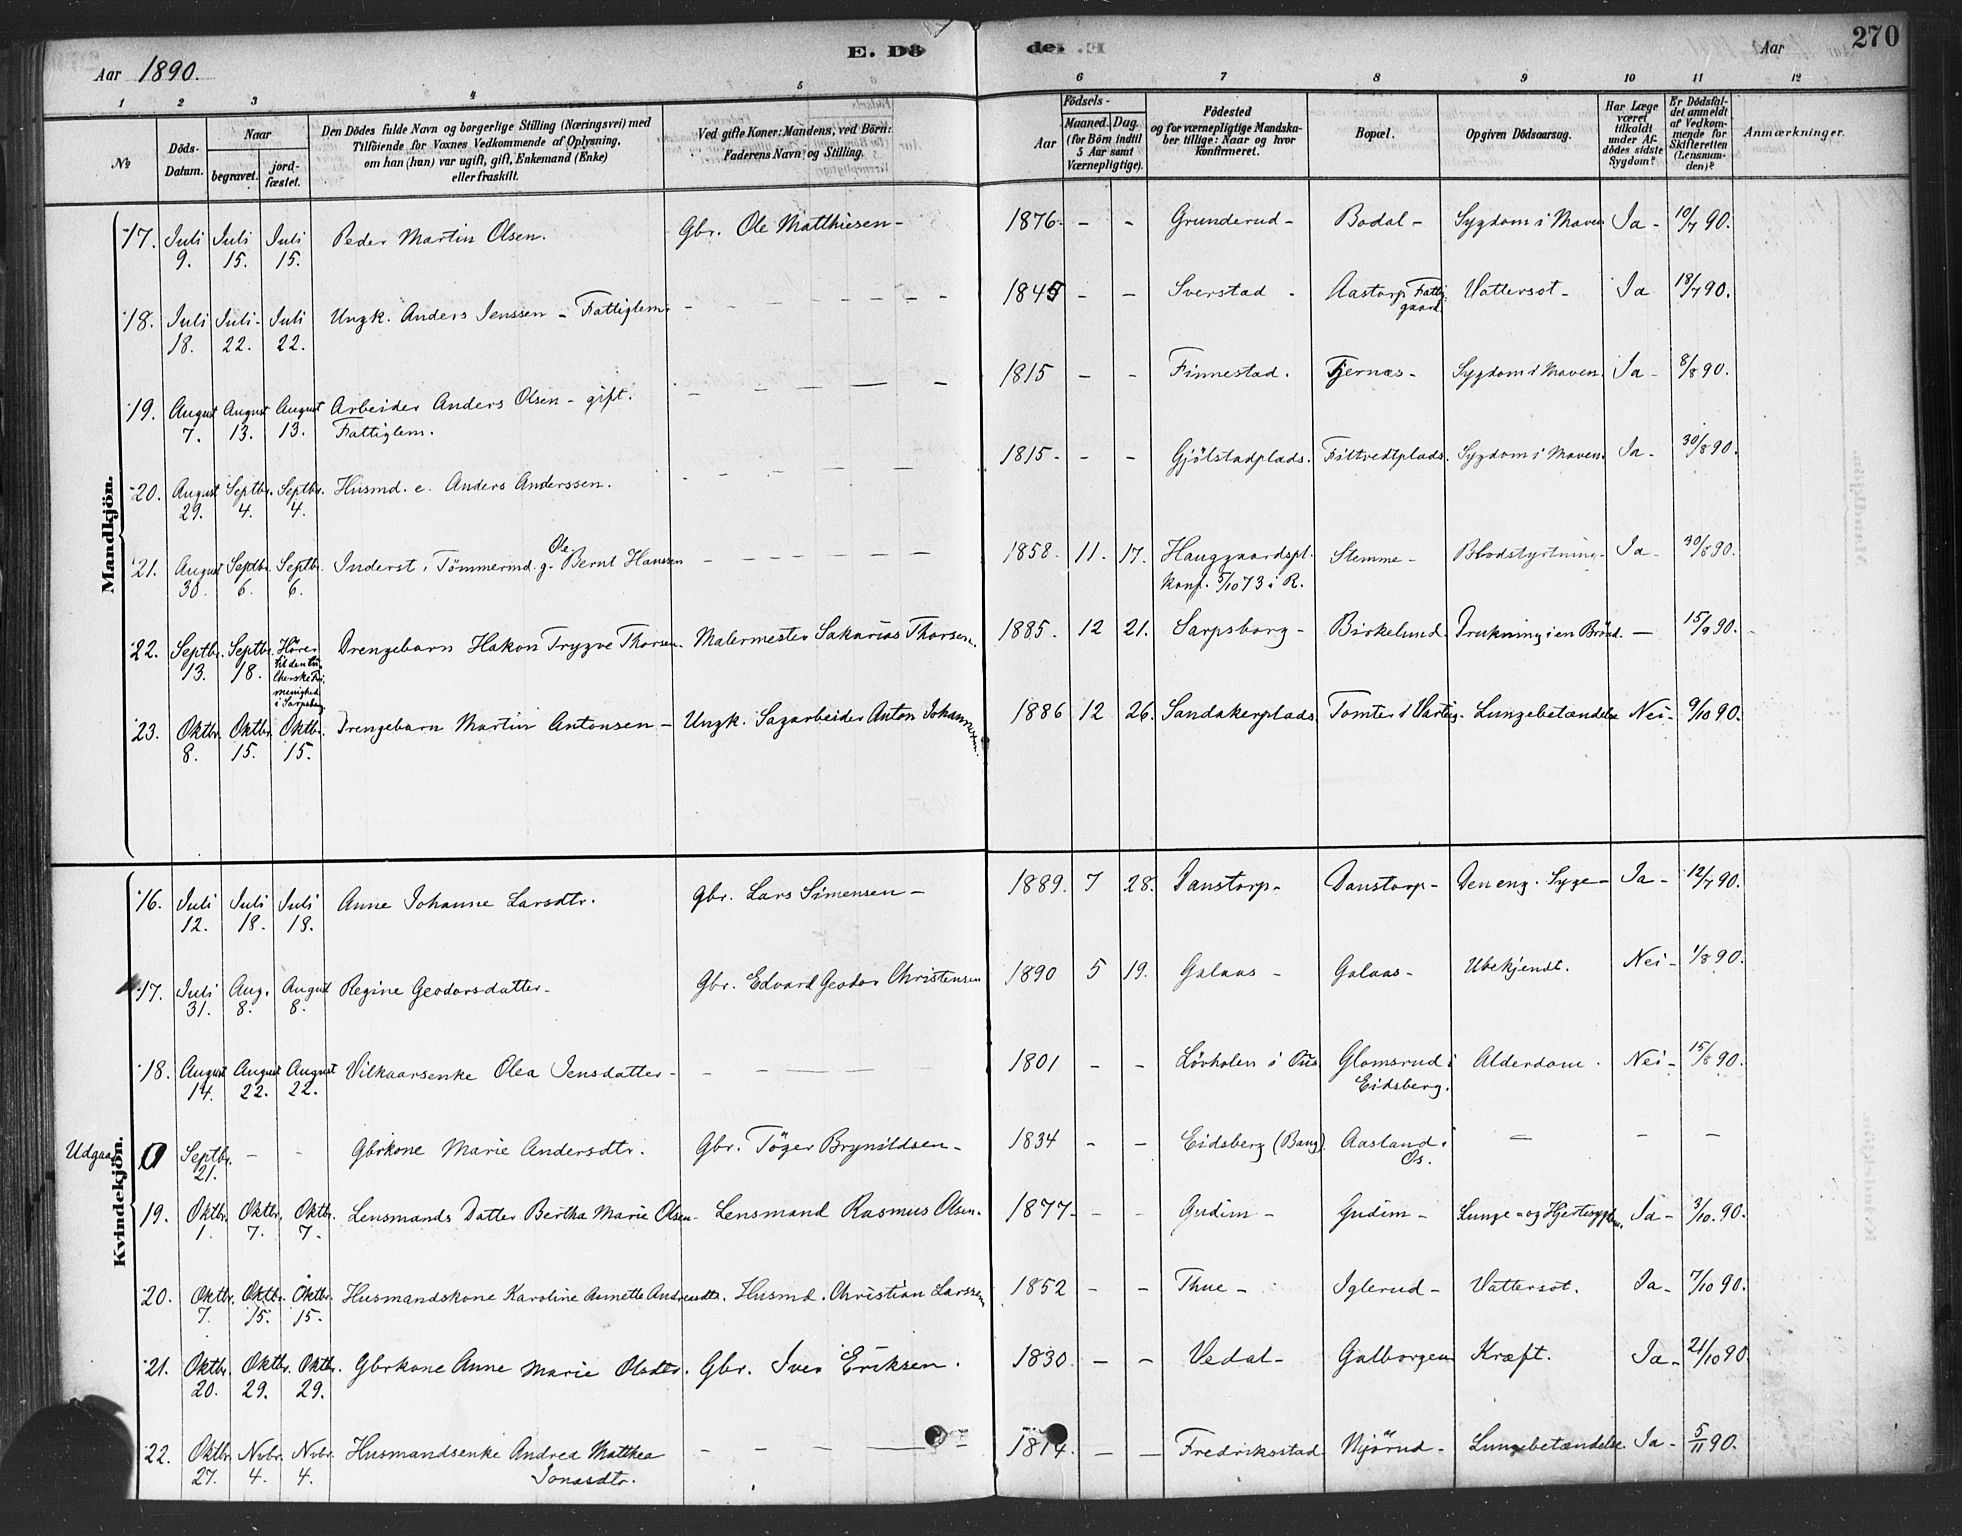 Aar 1890.
E. Dö
de. E.
Aar
270
1 2 3 4 5 6 7 8 9 10 11 12
No
Döds-Datum.
Naar
begravet.
jord-fæstet.
Den Dödes fulde Navn og borgerlige Stilling (Næringsvei) med
Tilföiende for Voxnes Vedkommende af Oplysning,
om han (hun) var ugift, gift, Enkemand (Enke)
eller fraskilt.
Ved gifte Koner: Mandens, ved Börn:
Faderens Navn og Stilling.
Födsels-
Aar
Maaned. Dag.
(for Börn indtil
5 Aar samt
Værnepligtige).
Födested
og for værnepligtige Mandska-
ber tillige: Naar og hvor
konfirmeret.
Bopæl.
Opgiven Dödsaarsag.
Har Læge
været
tilkaldt
under Af-
dödes sidste
Sygdom?
Er Dödsfal-
det anmeldt
af Vedkom-
mende for
Skifteretten
(Lensman-
den)?
Anmærkninger.
Mandkjön.
17. Juli 9. Juli 15. Juli 15. Peder Martin Olsen. Gbr. Ole Matthiesen - 1876. - - Grunderud - Bodal - Sygdom i Maven Ja - 10/7 90.
18. Juli 18. Juli 22. Juli 22. Ungk. Anders Jenssen - Fattiglem. - - - - - - 1845 - - Sverstad - Aastorp Fattiggaard. Vattersot - Ja 19/7 90.
19. August 7. August 13. August 13. Arbeider Anders Olsen - gift. Fattiglem. - - - - - 1815 - - Finnestad. Tjernæs - Sygdom i Maven. Ja - 8/8 90.
20. August 29. Septbr. 4. Septbr. 4. Husmd. e. Anders Anderssen. - - - - - 1815 - - - Gjölstadplads. Fittvedtplads. Sygdom i Maven. Ja - 30/8 90.
21. August 30. Septbr. 6. Septbr. 6. Inderst, Tömmermd. g. Ole Bernt Hanssen - - - - - - 1858. 11. 17. Hauggaardspl. Konf. 5/10 73 i R. Stemme - Blodstyrtning - Ja - 30/8 90.
22. Septbr. 13. Septbr. 18. Hörer til den lutherske Frimenighed i Sarpsborg. Drengebarn Hakon Trygve Thorsen. Malermester Sakarias Thorsen. 1885. 12 21. Sarpsborg - Birkelund. Drukning i en Brönd. - 15/9 90.
23. Oktbr. 8. Oktbr. 15. Oktbr. 15. Drengebarn Martin Antonsen - Ungk. Sagarbeider Anton Johannsen. 1886 12 26. Sandakerplads. Tomter i Varteig. Lungebetændelse Nei - 9/10 90.
Kvindekjön.
16. Juli 12. Juli 18. Juli 18. Anne Johanne Larsdtr. Gbr. Lars Simensen - 1889. 7 28. Danstorp - Danstorp - Den eng. Syge - Ja - 12/7 90.
17. Juli 31. Aug. 8. August 8. Regine Geodorsdatter - Gbr. Edvard Geodor Christensen 1890 5 19. Galaas - Galaas - Ubekjendt. Nei - 1/8 90.
18. August 14. August 22. August 22. Vilkaarsenke Olea Jensdatter - - - - - 1801 - - Lövholen i Ous Glomsrud i Eidsberg. Alderdom. Nei - 15/8 90.
Udgaar 0 Septbr. 21. - - Gbrkone Marie Andersdtr. Gbr. Töger Brynildsen - 1834 - - Eidsberg (Bang). Aasland i Os. - - -
19. Oktbr. 1. Oktbr. 7. Oktbr. 7. Lensmands Datter Bertha Marie Olsen - Lensmand Rasmus Olsen. 1877 - - - Gudim - Gudim - Lunge- og Hjertesygdom. Ja - 3/10. 90.
20. Oktbr. 7. Oktbr. 15. Oktbr. 15. Husmandskone Karoline Annette Andreasdtr. Husmd. Christian Larssen 1852 - - Thue - Iglerud - Vattersot. Ja - 7/10 90.
21. Oktbr. 20. Oktbr. 29. Oktbr. 29. Gbrkone Anne Marie Olsdtr. Gbr. Iver Eriksen. 1830. - - Vedal - Galborgen Kræft. Ja - 21/10 90
22. Oktbr. 27. Novbr. 4. Novbr. 4. Husmandsenke Andrea Matthea Jonasdtr. - - - - 1814. - - Fredriksstad Mjörud - Lungebetændelse. Ja - 5/11 90.